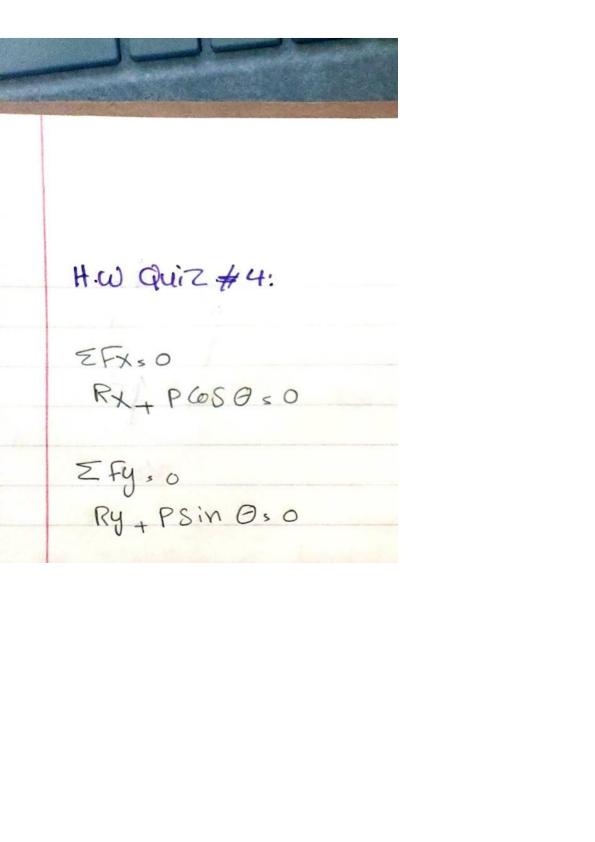 H.W Quiz #4:
ΣFx = 0
Rx + P cos θ = 0
ΣFy = 0
Ry + P sin θ = 0